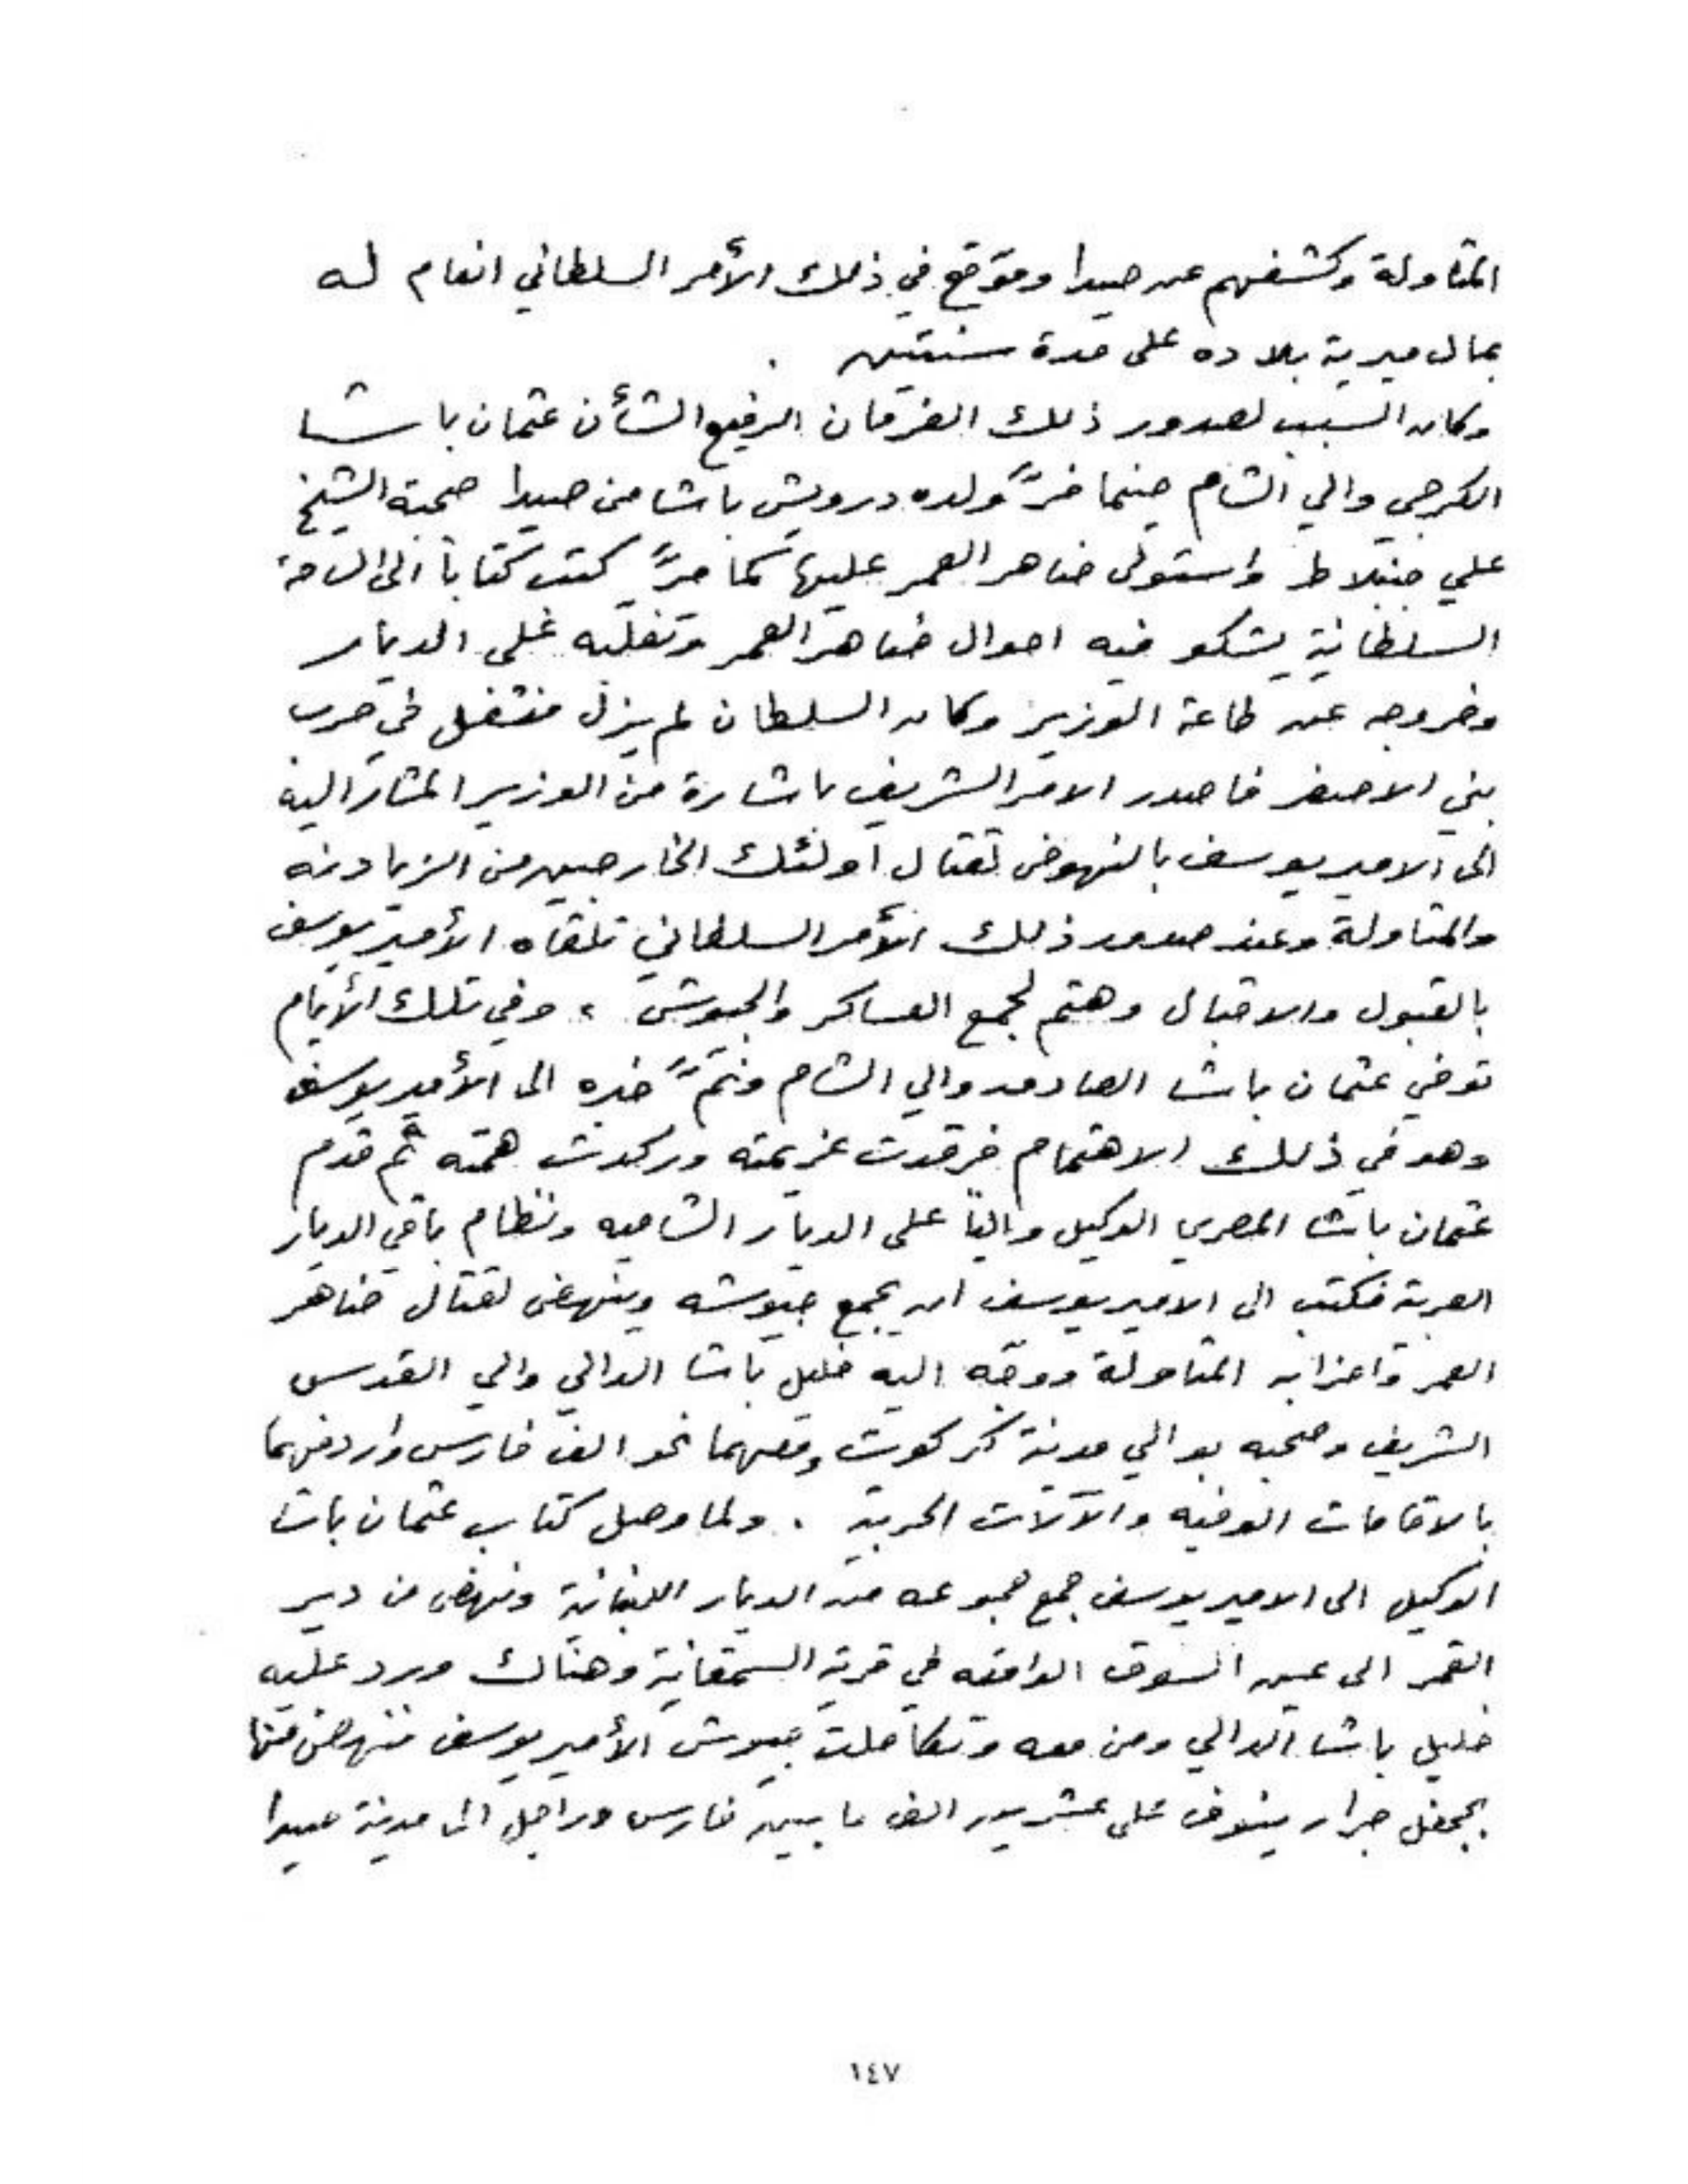 المتاولة وكشفهم عن صيدا وموقع في ذلك الأمر السلطاني انعام له
بمال ميرية بلاده على مدة سنتين .
وكان السبب لصدور ذلك الفرمان الرفيع الشأن عثمان باشا
الكرجي والي الشام حينما فرَّ ولده درويش باشا من صيدا صحبة الشيخ
علي جنبلاط واستولى ضاهر العمر عليها كما مرَّ كتب كتاباً الى الساحة
السلطانية يشكو فيه احوال ضاهر العمر وتغلبه على الديار
وخروجه عن طاعة الوزير وكان السلطان لم يزل منشغل في حرب
بني الاصفر فاصدر الامر الشريف باشارة من الوزير المشار اليه
الى الامير يوسف بالنهوض لقتال اولئك الخارجين من الزيادنه
والمتاولة وعند صدور ذلك الأمر السلطاني تلقاه الأمير يوسف
بالقبول والاقبال وهتم لجمع العساكر والجيوش ، وفي تلك الأيام
توفي عثمان باشا الصادق والي الشام ونمَّ خبره الى الأمير يوسف
وهو في ذلك الاهتمام فرقدت عزيمته وركدت همته ثم قدم
عثمان باشا المصري الوكيل والياً على الديار الشاميه ونظام باقي الديار
العربية فكتب الى الامير يوسف ان يجمع جيوشه وينهض لقتال ضاهر
العمر واحزابه المتاولة ووجّه اليه خليل باشا الدالي والي القدس
الشريف وصحبه بوالي مدينة كركوت ومعهما نحو الف فارس واردفهما
بالاقامات الوفيه والآلات الحربية . ولما وصل كتاب عثمان باشا
الوكيل الى الامير يوسف جمع جموعه من الديار اللبنانية ونهض من دير
القمر الى عين السوق الواقعه في قرية السمقانية وهناك ورد عليه
خليل باشا الدالي ومن معه وتكاملت جيوش الأمير يوسف فنهض منها
بجحفل جرار ينوف على عشرين الف ما بين فارس وراجل الى مدينة صيدا
١٤٧